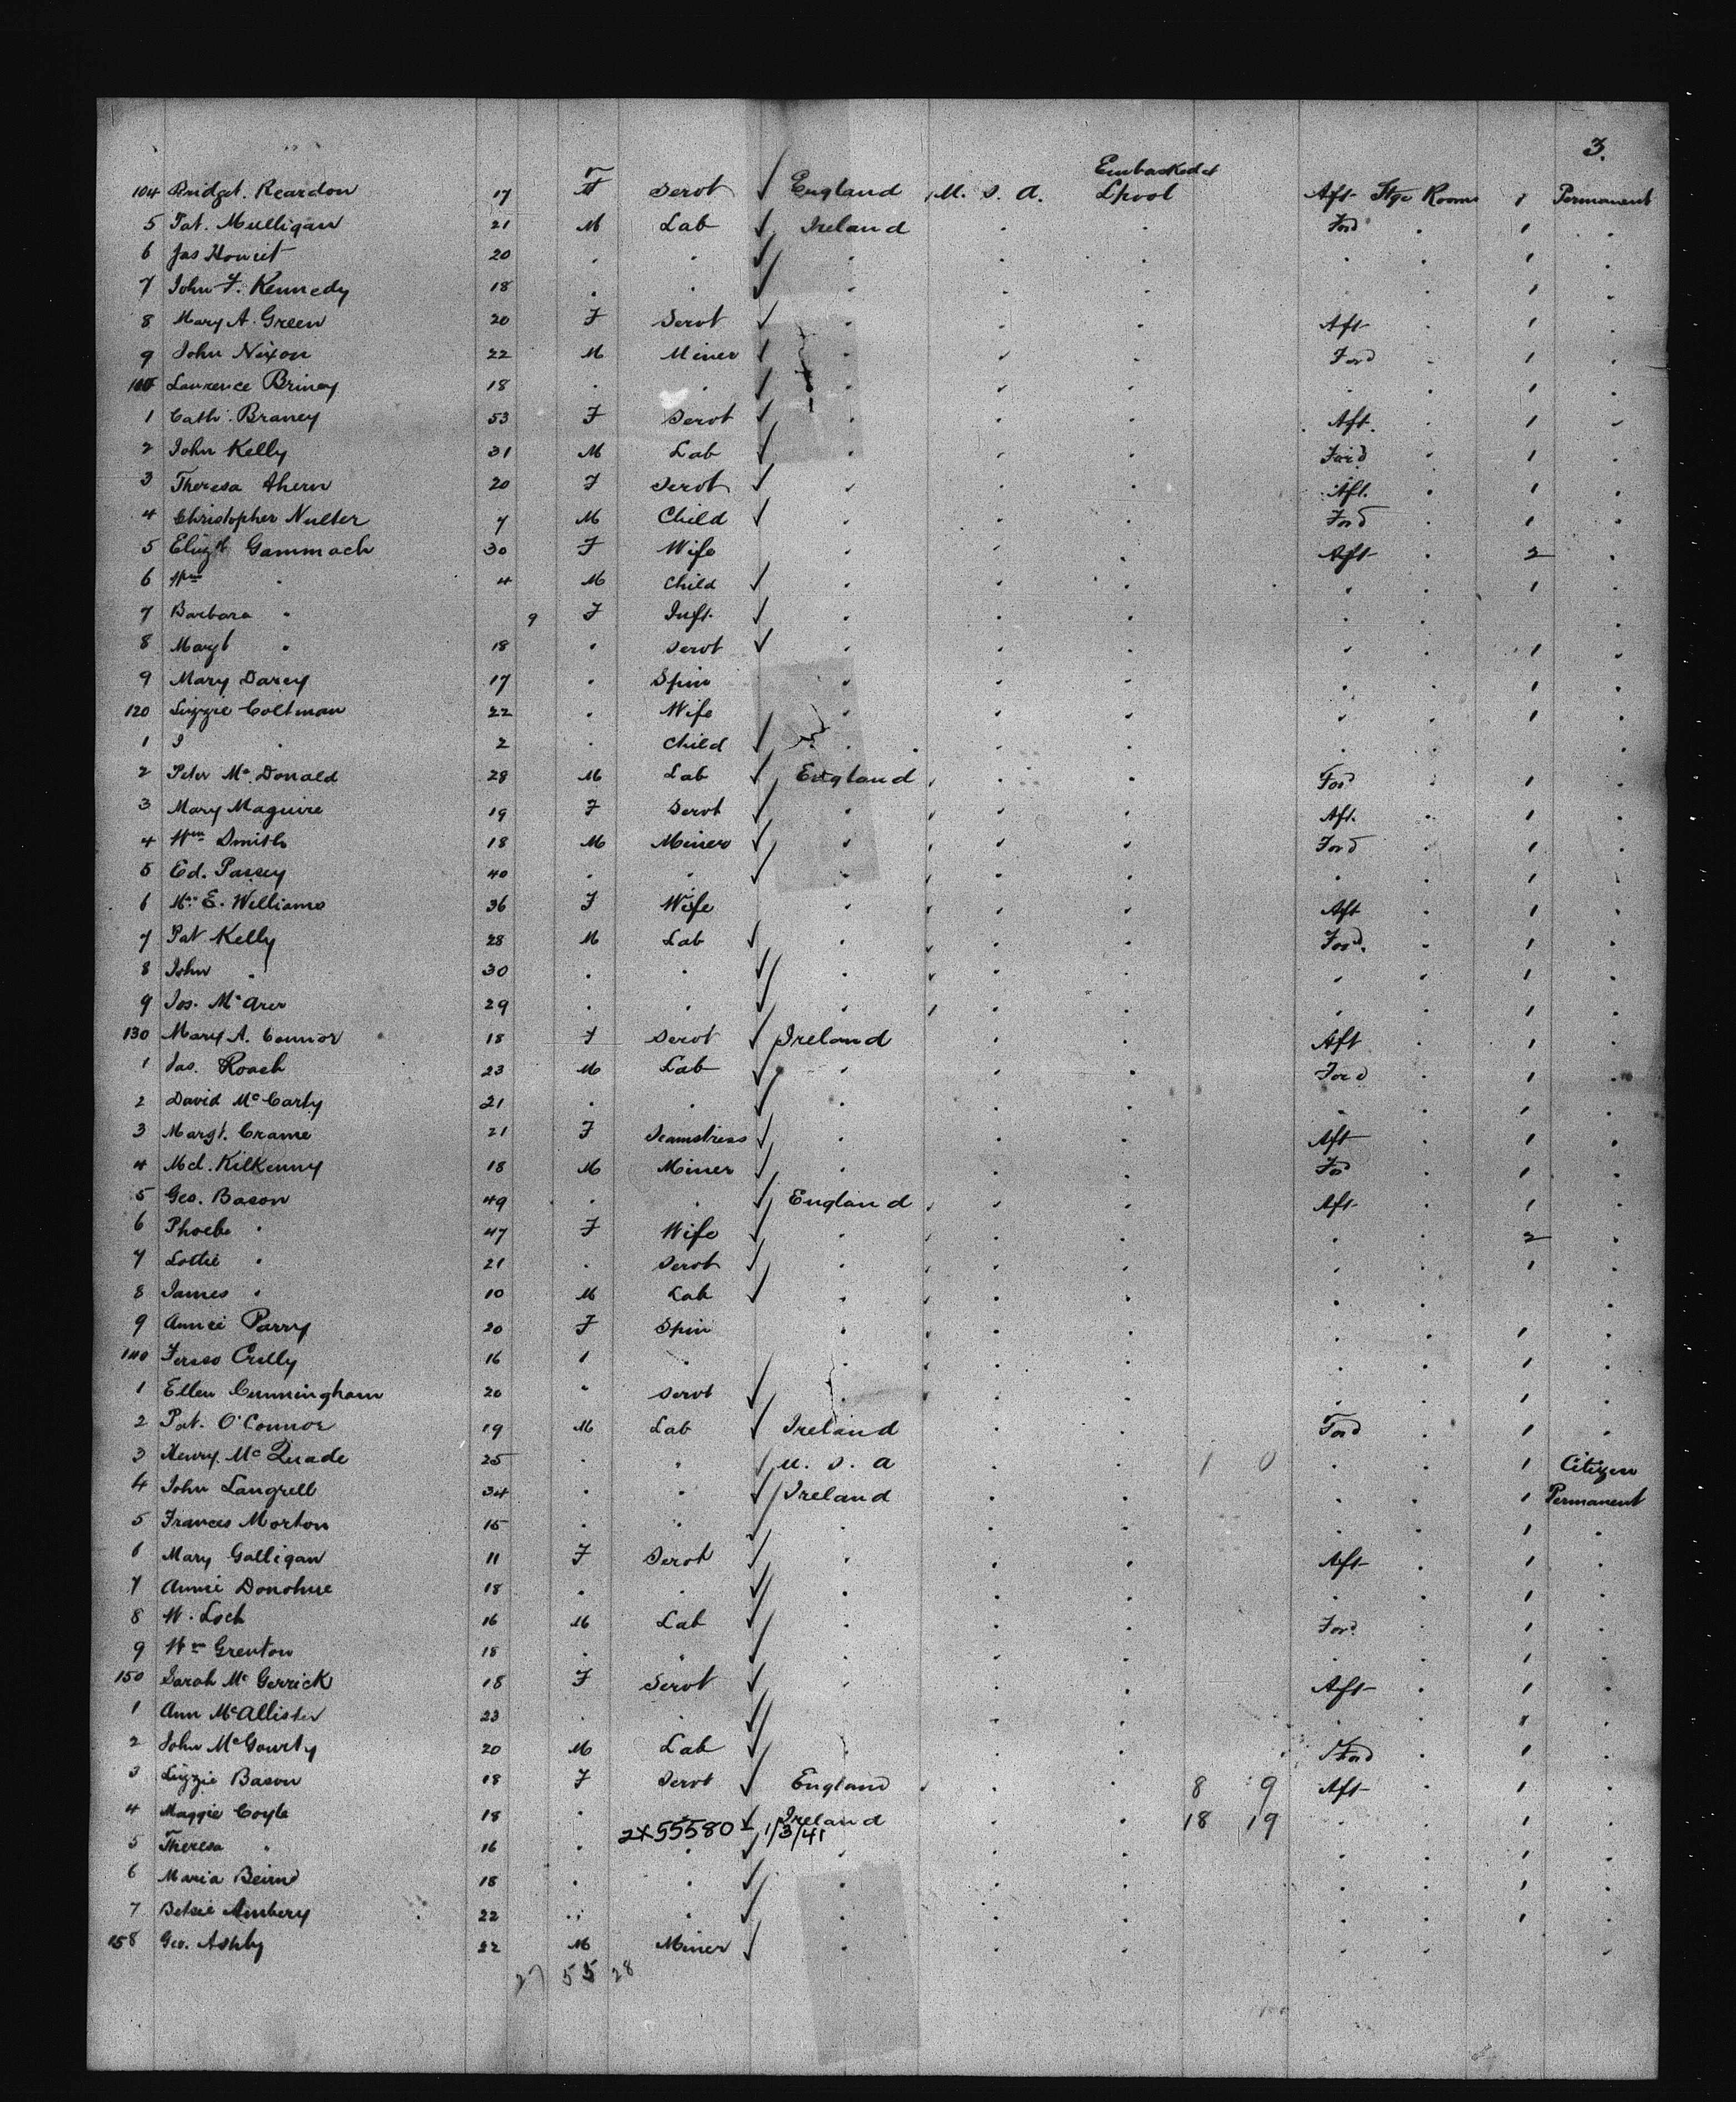 3.
Embarked at
104 Bridget. Reardon 17 F Servt ✓ England U. S. A. L'pool Aft Stge Room 1 Permanent
5 Pat. Mulligan 21 M Lab ✓ Ireland . . Ford . 1 .
6 Jas 20 . . ✓ . . . . . 1 .
7 John F. Kennedy 18 . . ✓ . . . . . 1 .
8 Mary A. Green 20 F Servt ✓ . . . Aft . 1 .
9 John Nixon 22 M Miner ✓ . . . Ford . 1 .
110 Laurence Briney 18 . . ✓ . . . . . 1 .
1 Cath. Braney 53 F Servt ✓ . . . Aft. . 1 .
2 John Kelly 31 M Lab ✓ . . . Ford . 1 .
3 Theresa Ahern 20 F Servt ✓ . . . Aft. . 1 .
4 Christopher Nulter 7 M Child ✓ . . . Ford . 1 .
5 Elizth Gammach 30 F Wife . . . Aft . 2 .
6 Wm " 4 M Child ✓ . . . . . 1 .
7 Barbara " 9 F Inft. ✓ . . . . . .
8 Margt " 18 . Servt ✓ . . . . . 1 .
9 Mary Darcy 17 . Spin . . . . . 1 .
120 Lizzie Coltman 22 . Wife . . . . . 1 .
1 J " 2 . Child ✓ . . . . . .
2 Peter McDonald 28 M Lab ✓ England . . Ford . 1 .
3 Mary Maguire 19 F Servt ✓ . . . Aft. . 1 .
4 Wm Smith 18 M Miner ✓ . . . Ford . 1 .
5 Ed. Passey 40 . . ✓ . . . . . 1 .
6 Mrs E. Williams 36 F Wife . . . Aft . 1 .
7 Pat Kelly 28 M Lab ✓ . . . Ford. . 1 .
8 John " 30 . . ✓ . . . . . 1 .
9 Jos. 29 . . ✓ . . . . . 1 .
130 Mary A. Connor 18 F Servt ✓ Ireland . . Aft . 1 .
1 Jas. Roach 23 M Lab ✓ . . . Ford . 1 .
2 David McCarty 21 . . ✓ . . . . . 1 .
3 Margt. Crame 21 F Seamstress ✓ . . . Aft . 1 .
4 Ml. Kilkenny 18 M Miner ✓ . . . Fod . 1 .
5 Geo. Bason 49 . . ✓ England . . Aft . 1 .
6 Phoebe " 47 F Wife ✓ . . . . . 2 .
7 Lottie " 21 . Servt ✓ . . . . . 1 .
8 James " 10 M Lab ✓ . . . . . .
9 Annie Parry 20 F Spin . . . . . 1 .
140 Crilly 16 . . . . . . . 1 .
1 Ellen Cunningham 20 " Servt ✓ . . . . . 1 .
2 Pat. O'Connor 19 M Lab ✓ Ireland . . Ford . 1 .
3 Henry McQuade 25 . . ✓ U. S. A . . 1 0 . . 1 Citizen
4 John Langrell 34 . . ✓ Ireland . . . . 1 Permanent
5 Frances Morton 15 . . ✓ . . . . . 1 .
6 Mary Galligan 11 F Servt ✓ . . . Aft . 1 .
7 Annie Donohue 18 . . ✓ . . . . . 1 .
8 W. Loch 16 M Lab ✓ . . . Ford . 1 .
9 Wm Grenton 18 . . ✓ . . . . . 1 .
150 Sarah McGerrick 18 F Servt ✓ . . . Aft . 1 .
1 Ann McAllister 23 . . ✓ . . . . . 1 .
2 John McGourty 20 M Lab ✓ . . . Ford . 1 .
3 Lizzie Bason 18 F Servt ✓ England . . 8 9 Aft . 1 .
4 Maggie Coyle 18 . ✓ Ireland . . 18 19 . . 1 .
2X55580 1/3/41
5 Theresa " 16 . . ✓ . . . . . 1 .
6 Maria Beirne 18 . . ✓ . . . . . 1 .
7 Betsie 22 . . ✓ . . . . . 1 .
158 Geo. Ashby 22 M Miner ✓ . . . . . .
27 55 28